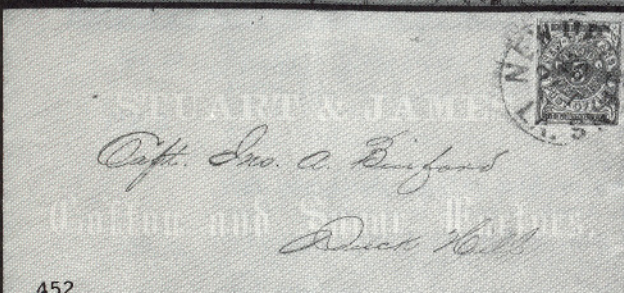 STUART & JAMES
Capt. Jno. A. Binford
Cotton and Sugar Factors.
Duck Hill
452